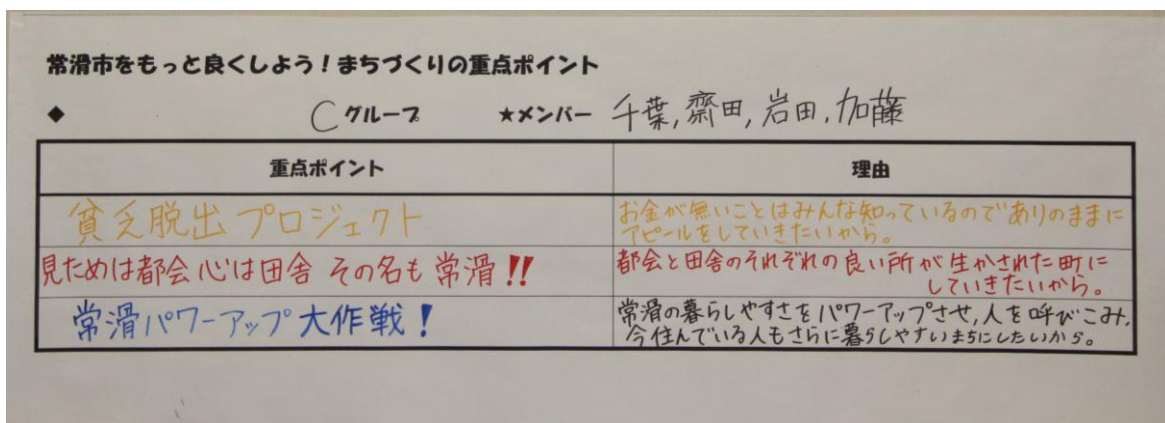 常滑市をもっと良くしよう！まちづくりの重点ポイント
◆ Cグループ ★メンバー 千葉,齋田,岩田,加藤
重点ポイント 理由
貧乏脱出プロジェクト
お金が無いことはみんな知っているのでありのままに
アピールをしていきたいから。
見ためは都会 心は田舎 その名も 常滑!!
都会と田舎のそれぞれの良い所が生かされた町に
していきたいから。
常滑パワーアップ大作戦！
常滑の暮らしやすさをパワーアップさせ,人を呼びこみ,
今住んでいる人もさらに暮らしやすいまちにしたいから。